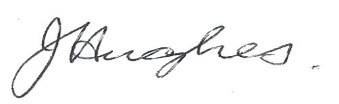 J Hughes.